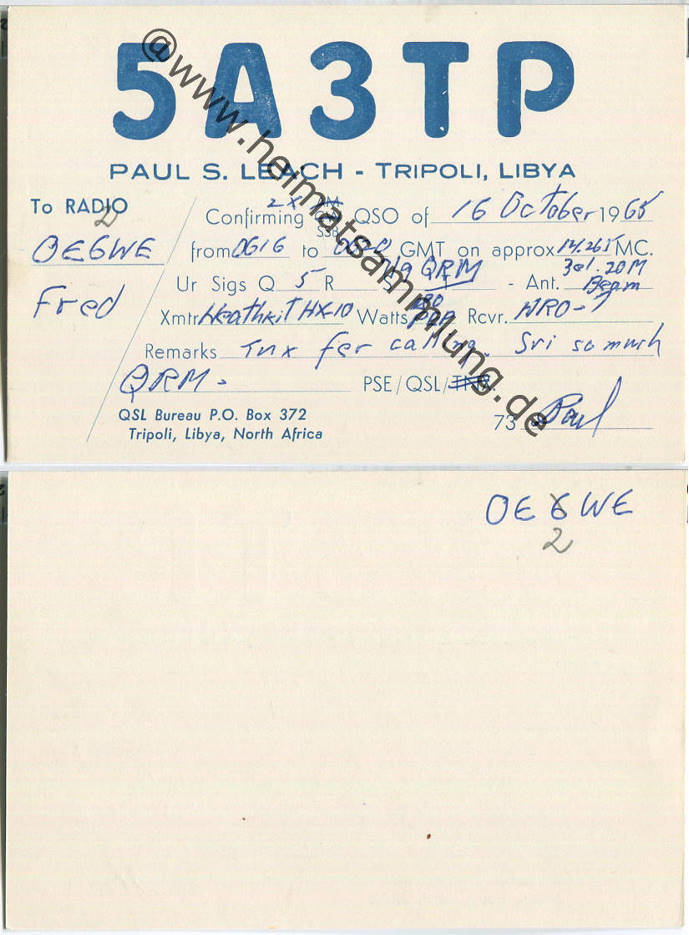 5A3TP
PAUL S. LEACH - TRIPOLI, LIBYA
To RADIO
2
OE6WE
Fred
2 X
Confirming SSB QSO of 16 October 1965
from 0616 to GMT on approx 14.265 MC.
Ur Sigs Q 5 R QRM - Ant. 3 el. 20M Beam
Xmtr Heathkit HX-10 Watts Rcvr. NRO-7
Remarks Tnx fer calling. Sri so much
QRM - PSE/QSL/
QSL Bureau P.O. Box 372
Tripoli, Libya, North Africa
73 Paul
@www.heimatsammlung.de
OE6WE
2